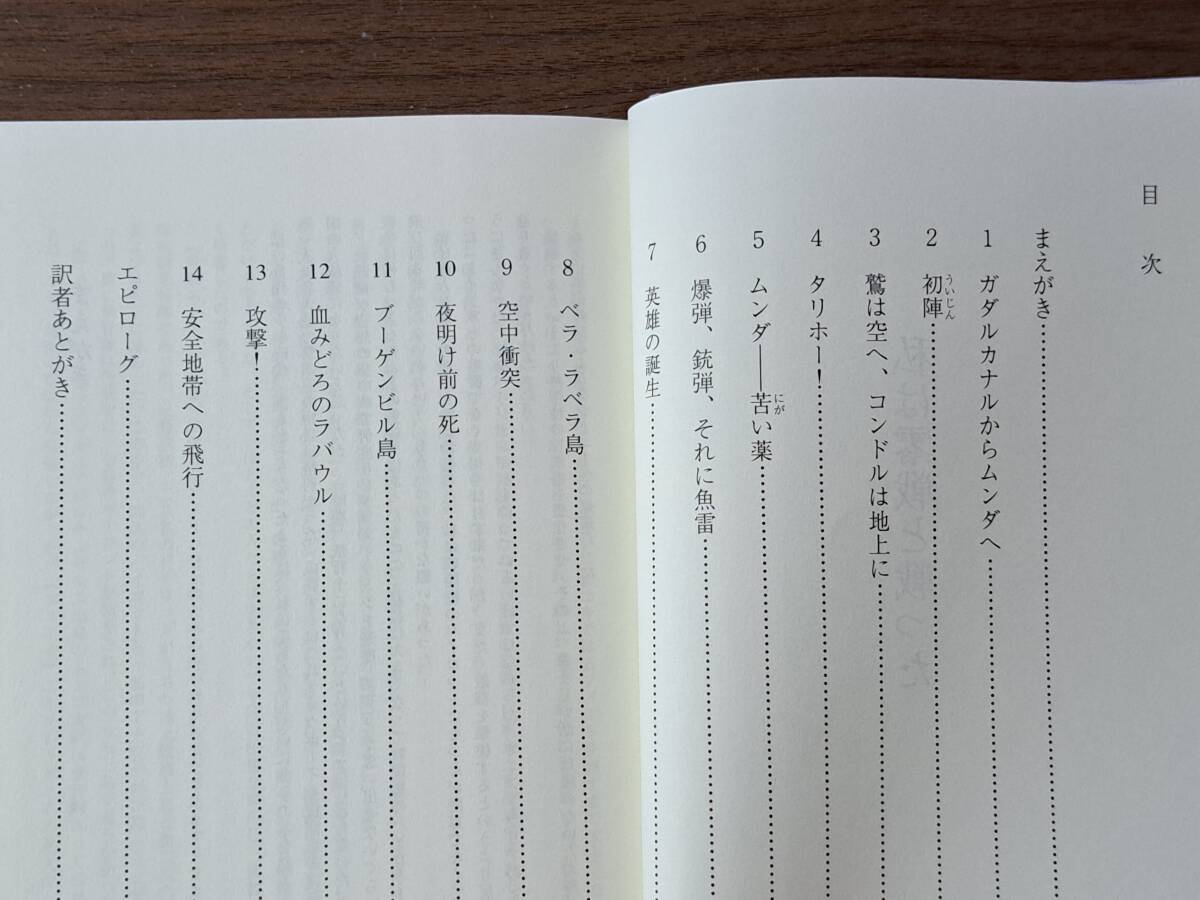 目次
まえがき……………………
1 ガダルカナルからムンダへ……………………
2 初陣……………………
ういじん
3 鷲は空へ、コンドルは地上に……………………
4 タリホー！……………………
5 ムンダ――苦い薬……………………
にが
6 爆弾、銃弾、それに魚雷……………………
7 英雄の誕生……………………
8 ベラ・ラベラ島……………………
9 空中衝突……………………
10 夜明け前の死……………………
11 ブーゲンビル島……………………
12 血みどろのラバウル……………………
13 攻撃！……………………
14 安全地帯への飛行……………………
エピローグ……………………
訳者あとがき……………………
私は零戦と戦った